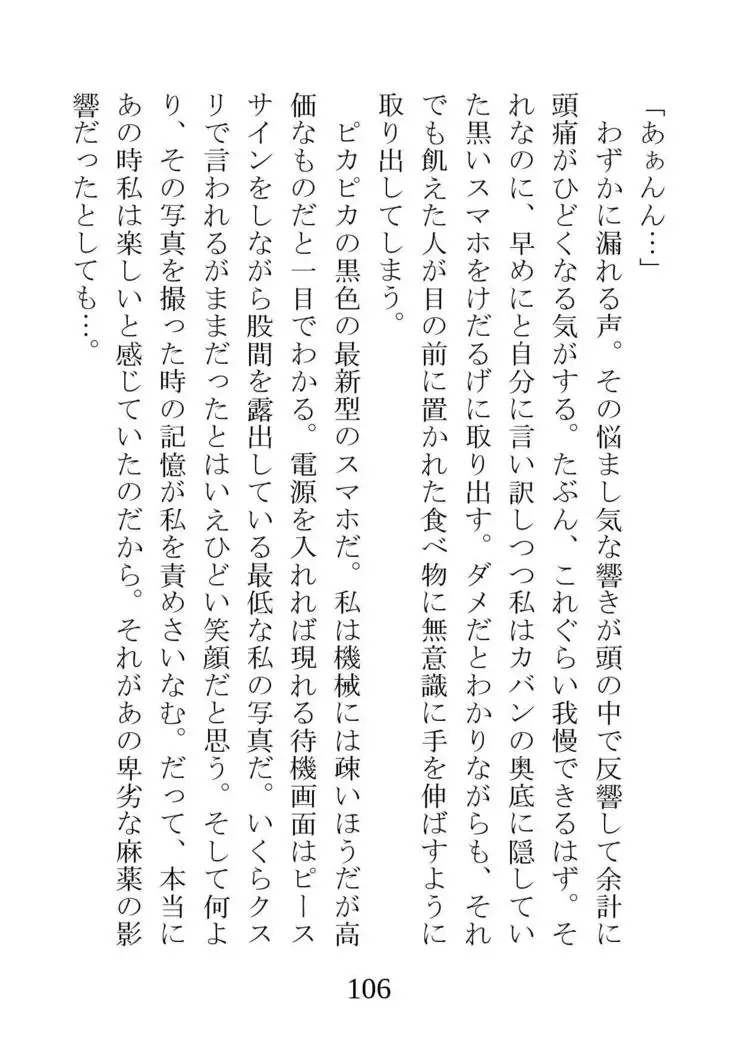 「あぁんん…」
　わずかに漏れる声。その悩まし気な響きが頭の中で反響して余計に
頭痛がひどくなる気がする。たぶん、これぐらい我慢できるはず。そ
れなのに、早めにと自分に言い訳しつつ私はカバンの奥底に隠してい
た黒いスマホをけだるげに取り出す。ダメだとわかりながらも、それ
でも飢えた人が目の前に置かれた食べ物に無意識に手を伸ばすように
取り出してしまう。
　ピカピカの黒色の最新型のスマホだ。私は機械には疎いほうだが高
価なものだと一目でわかる。電源を入れれば現れる待機画面はピース
サインをしながら股間を露出している最低な私の写真だ。いくらクス
リで言われるがままだったとはいえひどい笑顔だと思う。そして何よ
り、その写真を撮った時の記憶が私を責めさいなむ。だって、本当に
あの時私は楽しいと感じていたのだから。それがあの卑劣な麻薬の影
響だったとしても…。
106